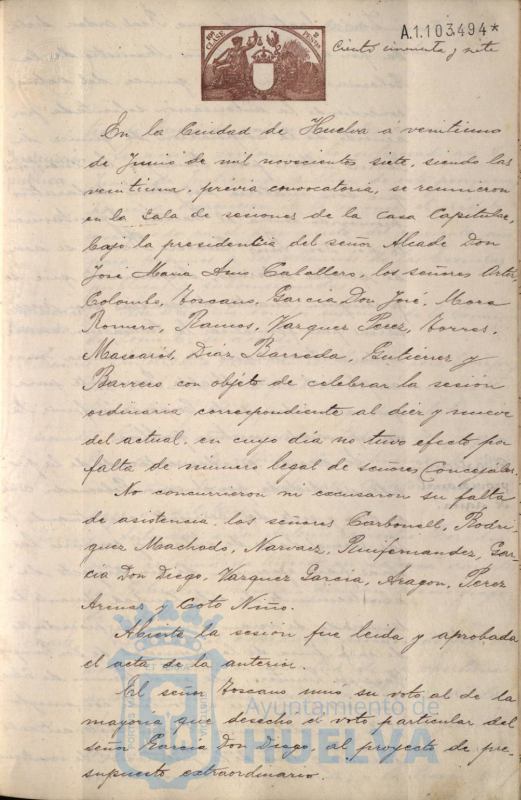 A.1.103.494*
Ciento cincuenta y siete
CLASE
En la Ciudad de Huelva a veintiuno
de Junio de mil novecientos siete, siendo las
veintiuna, previa convocatoria, se reunieron
en la Sala de sesiones de la Casa Capitular,
bajo la presidentia del señor Alcade Don
José Maria Amo Caballero, los señores
Colombo, Toscano, Garcia Don José, Mora
Romero, Ramos, Vazquez Perez, Torres,
Mascarós, Diaz Barreda, Gutierrez y
Barrero con objeto de celebrar la sesión
ordinaria correspondiente al diez y nueve
del actual, en cuyo dia no tuvo efecto por
falta de número legal de señores Concejales.
No concurrieron ni excusaron su falta
de asistencia los señores Carbonell, Rodri-
guez Machado, Narvaez, Ruifernandez, Gar-
cia Don Diego, Vazquez Garcia, Aragon, Perez
Arenas y Coto Niño.
Abierta la sesión fue leida y aprobada
el acta de la anterior.
El señor Toscano unió su voto al de la
mayoria que desechó el voto particular del
señor Garcia Don Diego, al proyecto de pre-
supuesto extraordinario.
Ayuntamiento de
HUELVA